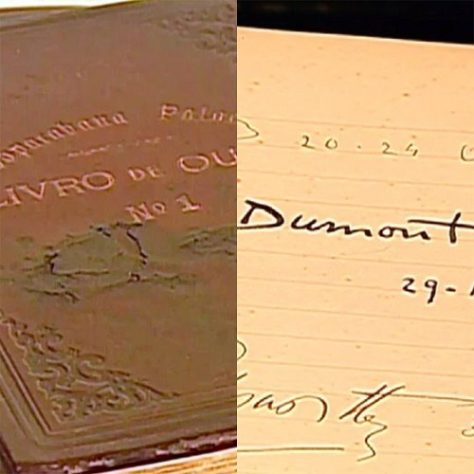 opacabana Pala
LIVRO DE OU
No 1
20.24
Dumont
29-